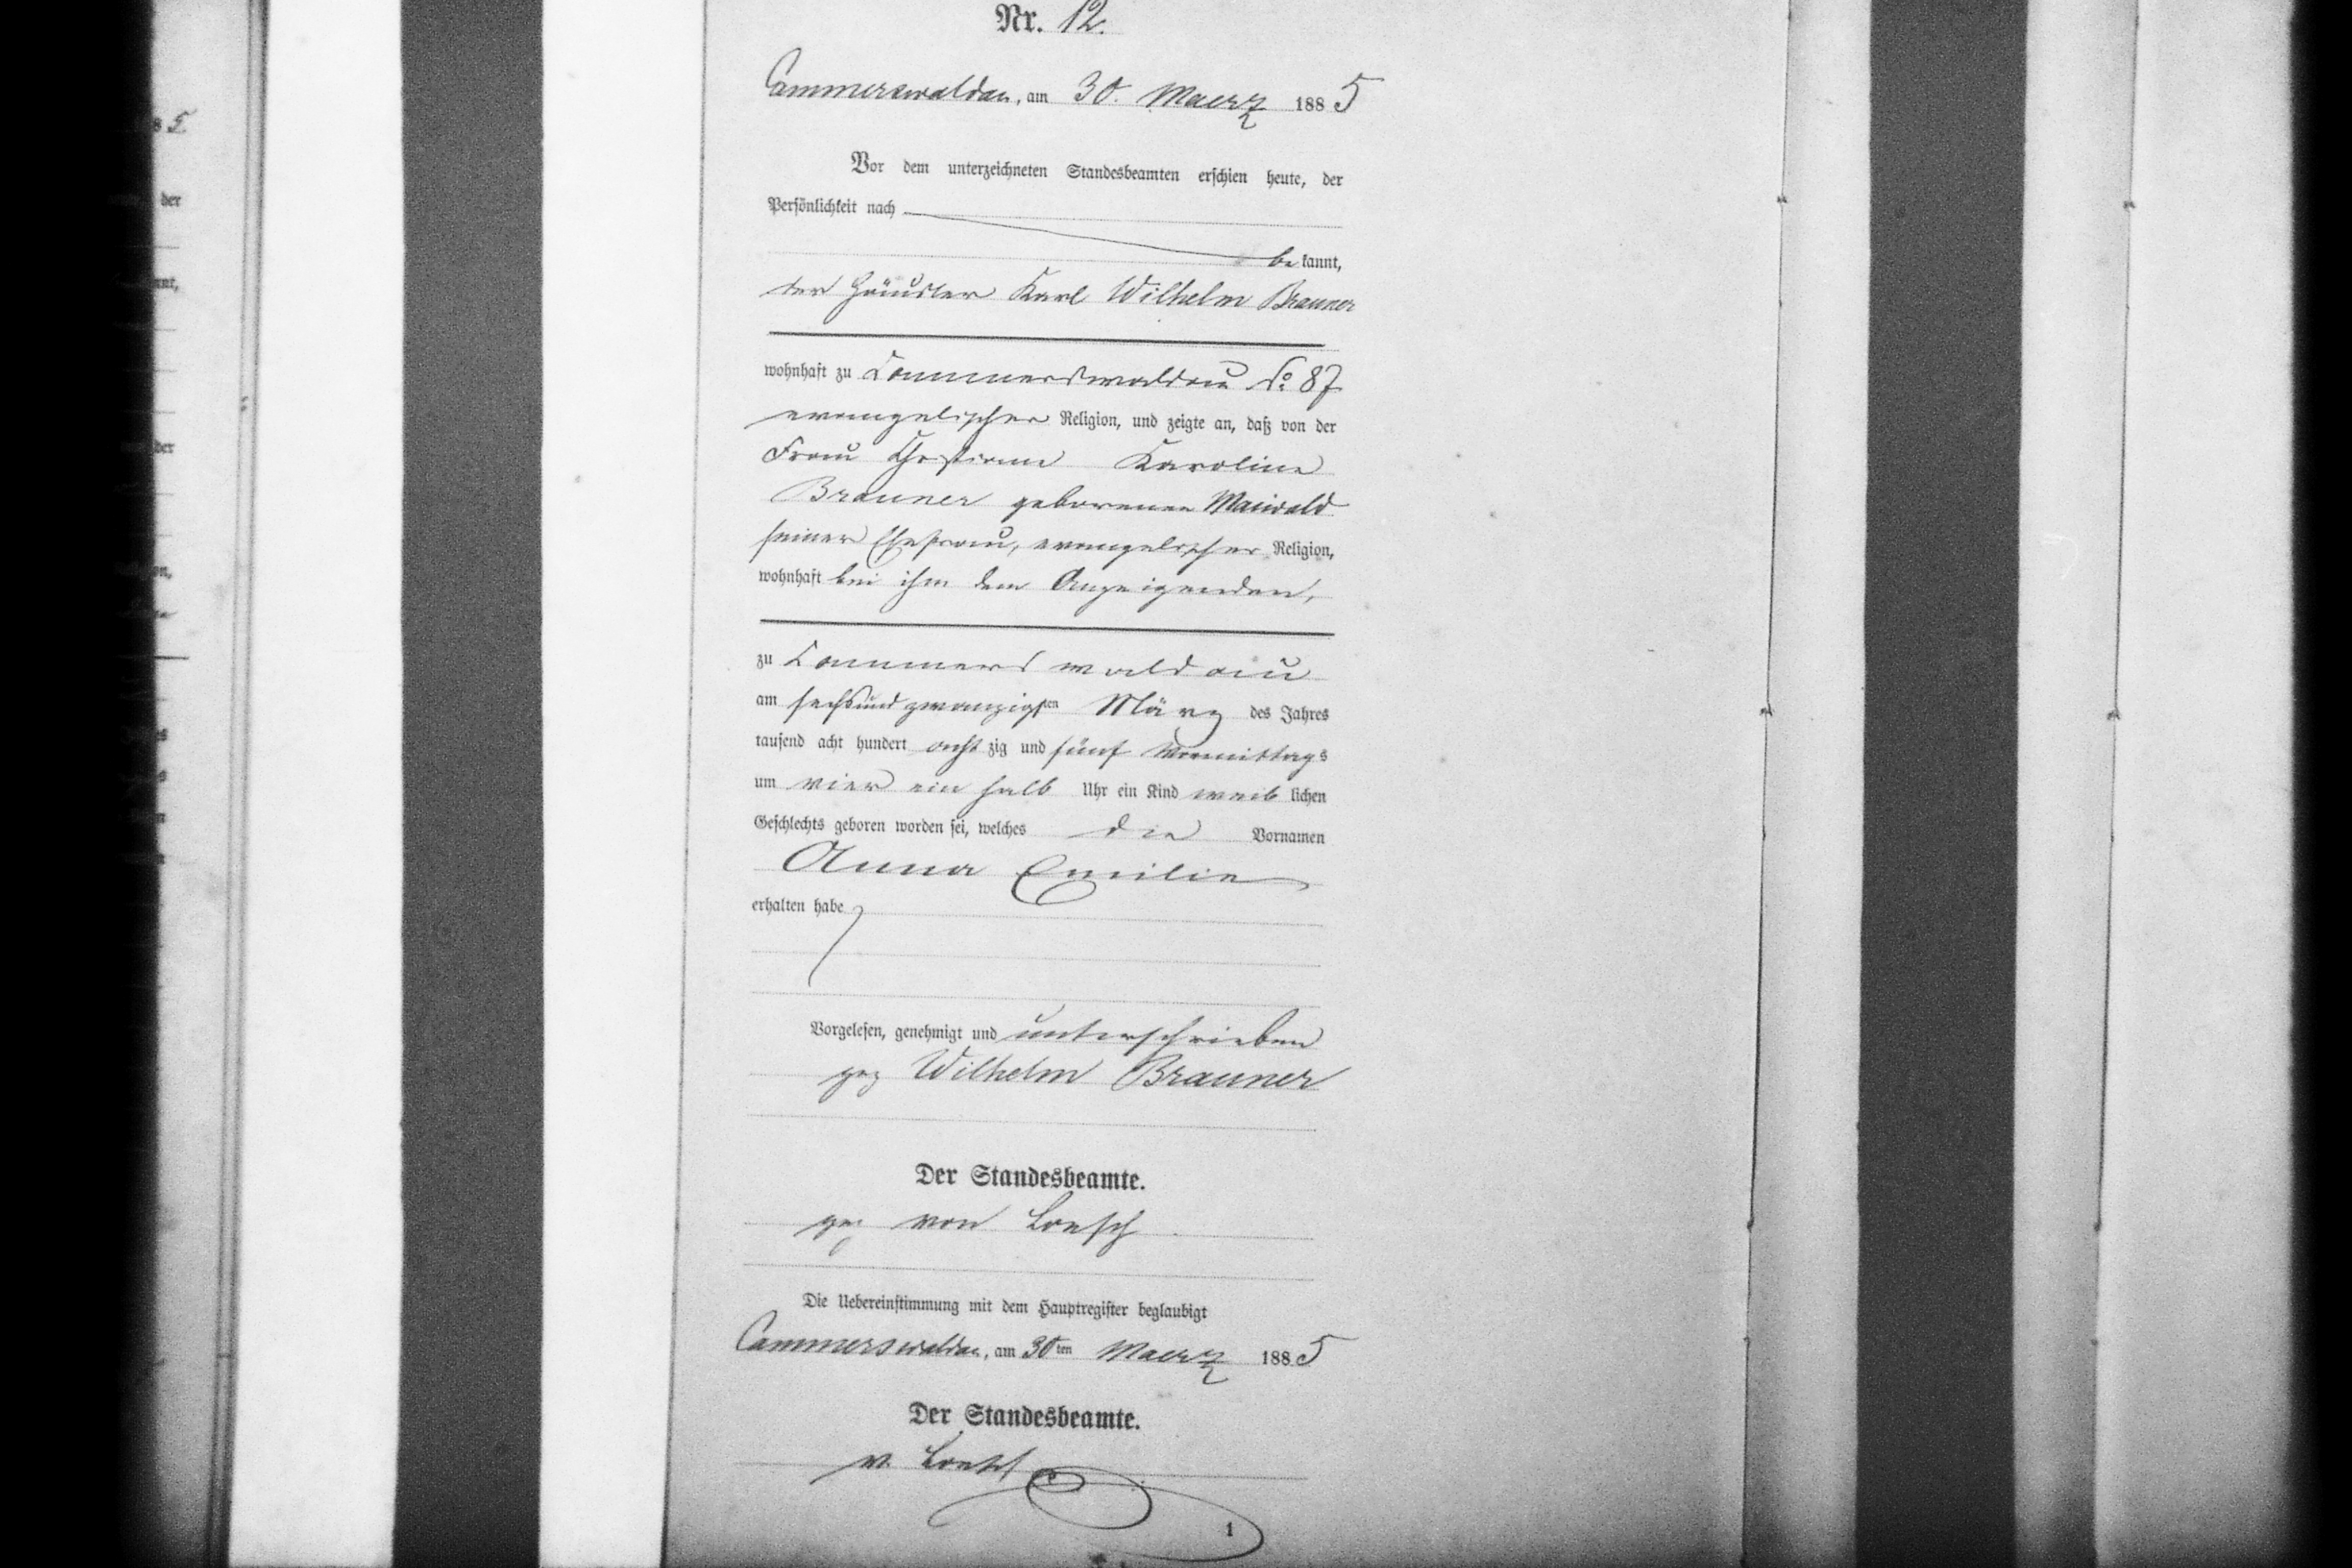 Nr. 12.
Cammerswaldau, am 30. Maerz 1885
Vor dem unterzeichneten Standesbeamten erschien heute, der
Persönlichkeit nach
bekannt,
der Häusler Karl Wilhelm Brauner
wohnhaft zu Cammerswaldau No 87
evangelischer Religion, und zeigte an, daß von der
Frau Christiane Karoline
Brauner geborenen Maiwald
seiner Ehefrau, evangelischer Religion,
wohnhaft bei ihm dem Anzeigenden,
zu Cammerswaldau
am sechsundzwanzigsten März des Jahres
tausend acht hundert achtzig und fünf Vormittags
um vier ein halb Uhr ein Kind weiblichen
Geschlechts geboren worden sei, welches die Vornamen
Anna Emilie
erhalten habe
Vorgelesen, genehmigt und unterschrieben
gez Wilhelm Brauner
Der Standesbeamte.
gez von Loesch
Die Uebereinstimmung mit dem Hauptregister beglaubigt
Cammerswaldau, am 30ten Maerz 1885
Der Standesbeamte.
v. Loesch
1